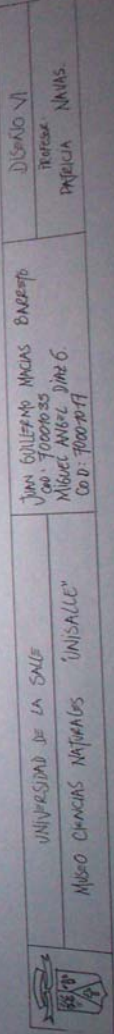 UNIVERSIDAD DE LA SALLE
MUSEO CIENCIAS NATURALES "UNISALLE"
JUAN GUILLERMO MACIAS BARRETO
COD: 70001035
MIGUEL ANGEL DIAZ G.
COD: 70001017
DISEÑO VI
PROFESOR:
PATRICIA NAVAS.